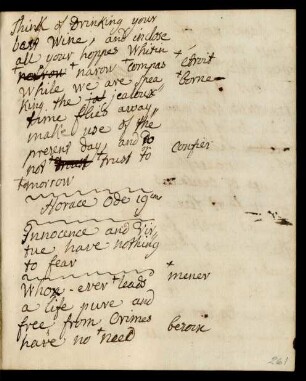 Think of Drinking your
best Wine, and inclose
all your hoppes Whitin
narow compas + etroit
While we are spea + borne
king the jealous
time flies away
make use of the
present day, and to
not trust to confier
tomorrow
Horace Ode 19
Innocence and Vir
tue have nothing
to fear
Whox-ever + leads + mener
a life pure and
free from Crimes
have no + need besoin
261